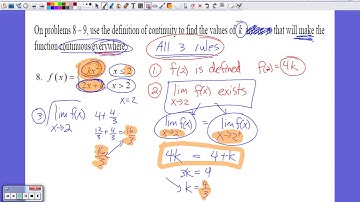 On problems 8 – 9, use the definition of continuity to find the values of k that will make the
function continuous everywhere.
All 3 rules
8. f(x) = { kx², x ≤ 2
2x + k, x > 2
x = 2
① f(2) is defined f(2) = 4k
② lim f(x) exists
x→2
lim f(x) = lim f(x)
x→2⁻ x→2⁺
4k = 4 + k
3k = 4
k = 4/3
③ lim f(x)
x→2
4 + 4/3
12/3 + 4/3 = 16/3
16/3